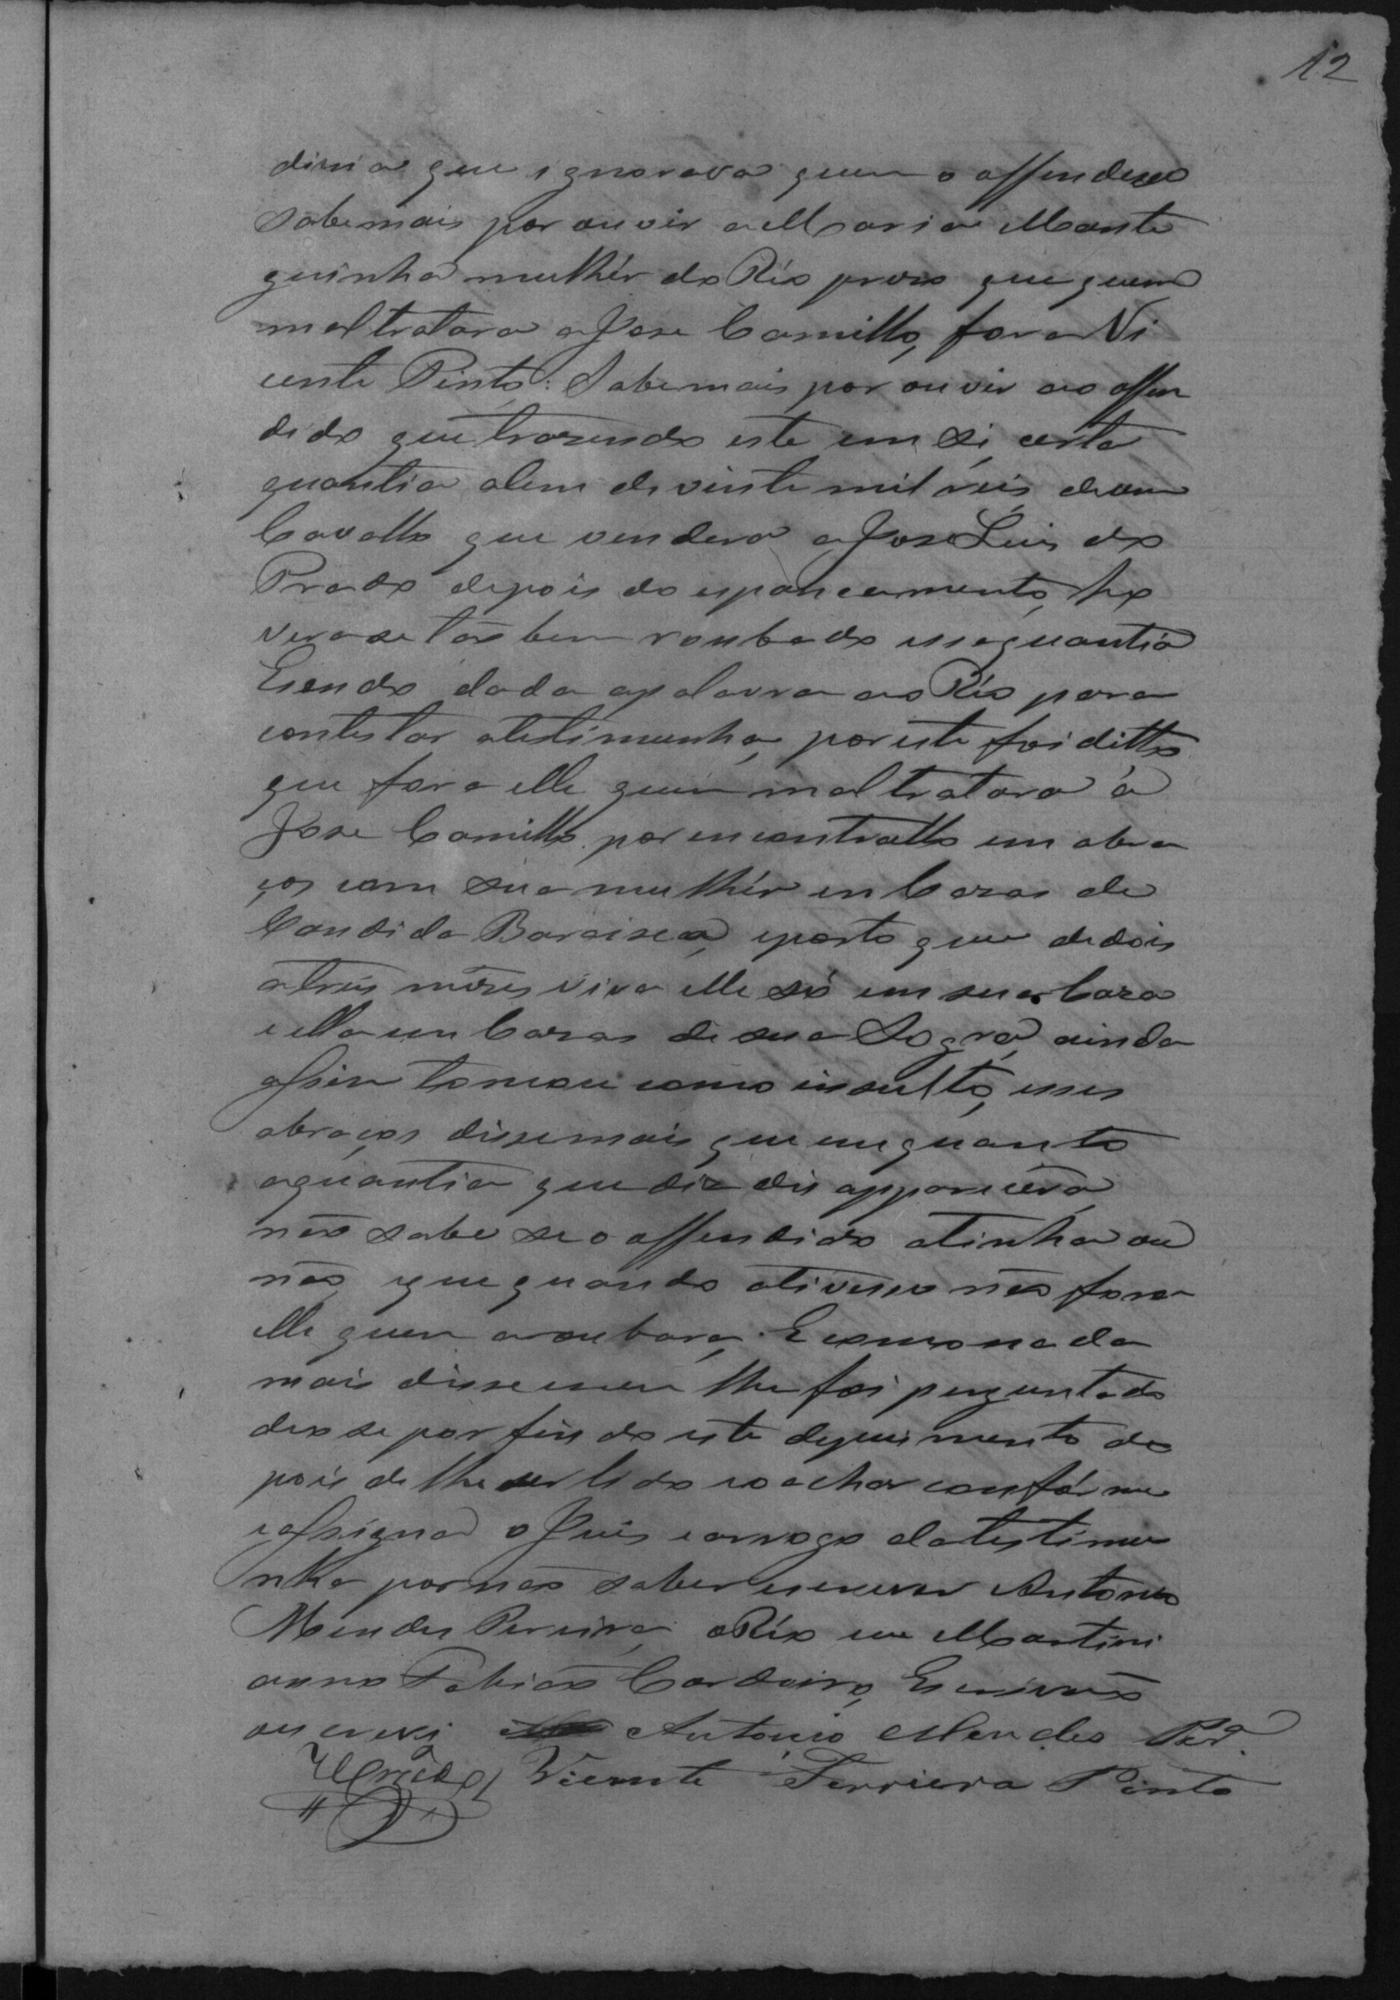 12
disia que ignorava quem o offendeo
Sabe mais por ouvir a Maria Mante
guinha mulhér do Réo prezo que quem
maltratara a Jose Camillo, fora Vi
cente Pinto: Sabe mais por ouvir ao offen
dido que trazendo este em si, certa
quantia alem de vinte mil réis de um
Cavallo que vendera a Jose Luis do
Prado depois do espancamento, ho
vera-se tão bem roubado essa quantia
E sendo dada a palavra ao Réo para
contestar a testimunha, por este foi ditto
que fora elle quem maltratara á
Jose Camillo por encontrallo em abra
ços com sua mulhér em Cazas de
Candida e posto que de dois
a três mêzes viva elle só em sua Caza
e ella em Cazas de sua Sogra, ainda
assim tomou como insulto, esses
abraços disse mais que em quanto
a quantia que diz disapparecêra
não sabe se o offendido a tinha ou
não, e que quando a tivesse não fora
elle quem a roubara. E como nada
mais disse nem lhe foi perguntado
deo-se por findo este depuimento de
pois de lhe ser lido e o achar confórme
e assigna o Juis e a rogo da testimu
nha por não saber escrever Antonio
Mendes Pereira, o Réo eu Martini
anno Fabião Cordeiro, Escrivão
o escrevi Antonio Mendes Per.ª
Vicente Ferriera Pinto